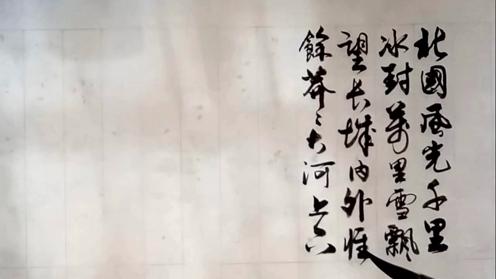 北國風光千里
冰封萬里雪飄
望长城内外惟
餘莽〻大河上下